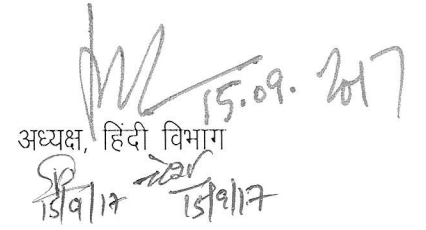 15.09.2017
अध्यक्ष, हिंदी विभाग
15/9/17 15/9/17